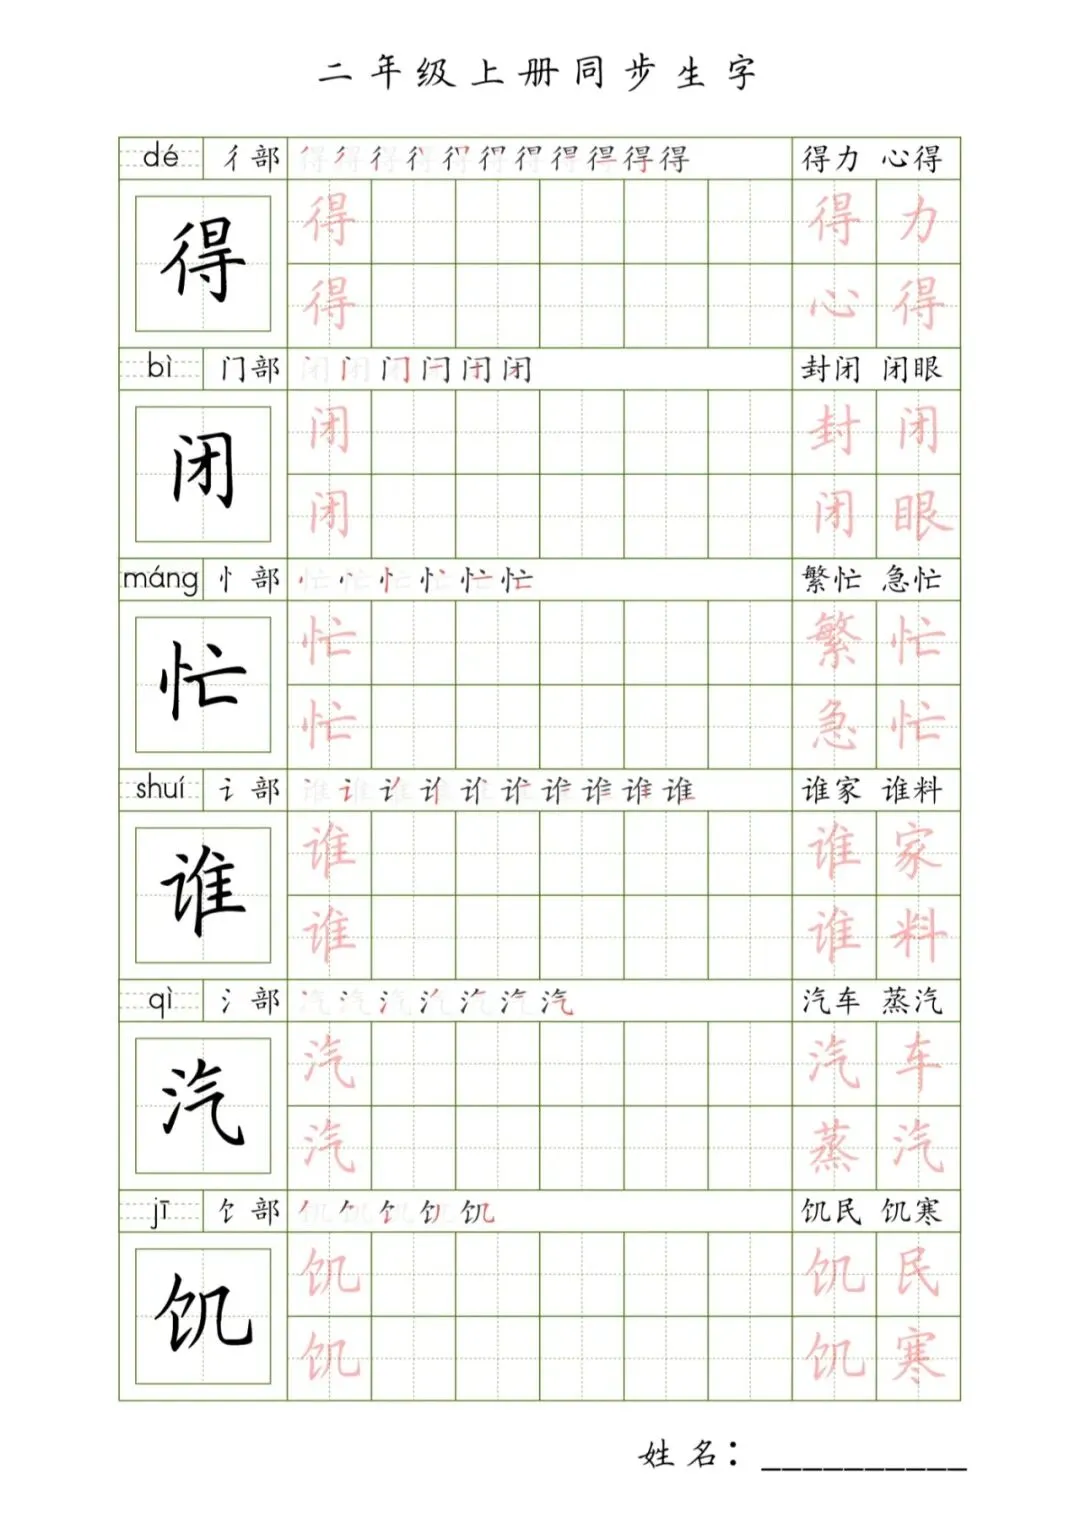 二年级上册同步生字
dé 彳部 得得得得得得得得得得得 得力 心得
得 得 得力
得 心得
bì 门部 闭闭闭闭闭闭 封闭 闭眼
闭 闭 封闭
闭 闭眼
máng 忄部 忙忙忙忙忙忙 繁忙 急忙
忙 忙 繁忙
忙 急忙
shuí 讠部 谁谁谁谁谁谁谁谁谁谁 谁家 谁料
谁 谁 谁家
谁 谁料
qì 氵部 汽汽汽汽汽汽汽 汽车 蒸汽
汽 汽 汽车
汽 蒸汽
jī 饣部 饥饥饥饥饥 饥民 饥寒
饥 饥 饥民
饥 饥寒
姓名：__________